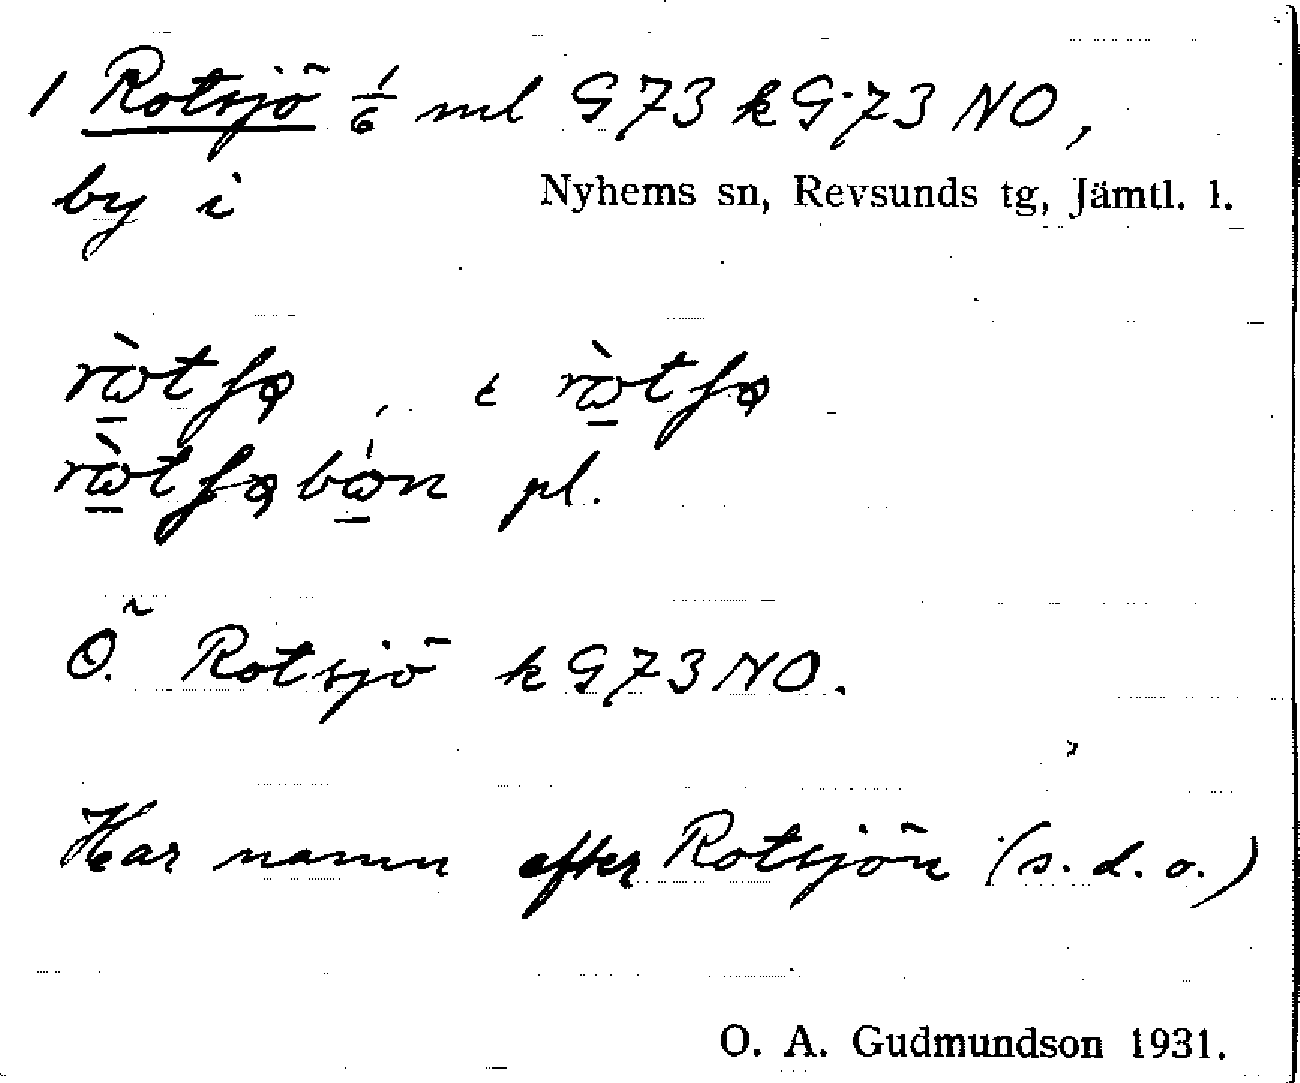 1 Rotsjö 1/6 ml G73 k G73 NO,
by i Nyhems sn, Revsunds tg, Jämtl. l.
rò̱tʃø, ɩ rò̱tʃø
rò̱tʃøbo̱n pl.
Ö. Rotsjö k G73 NO.
Har namn efter Rotsjön (s. d. o.)
O. A. Gudmundson 1931.